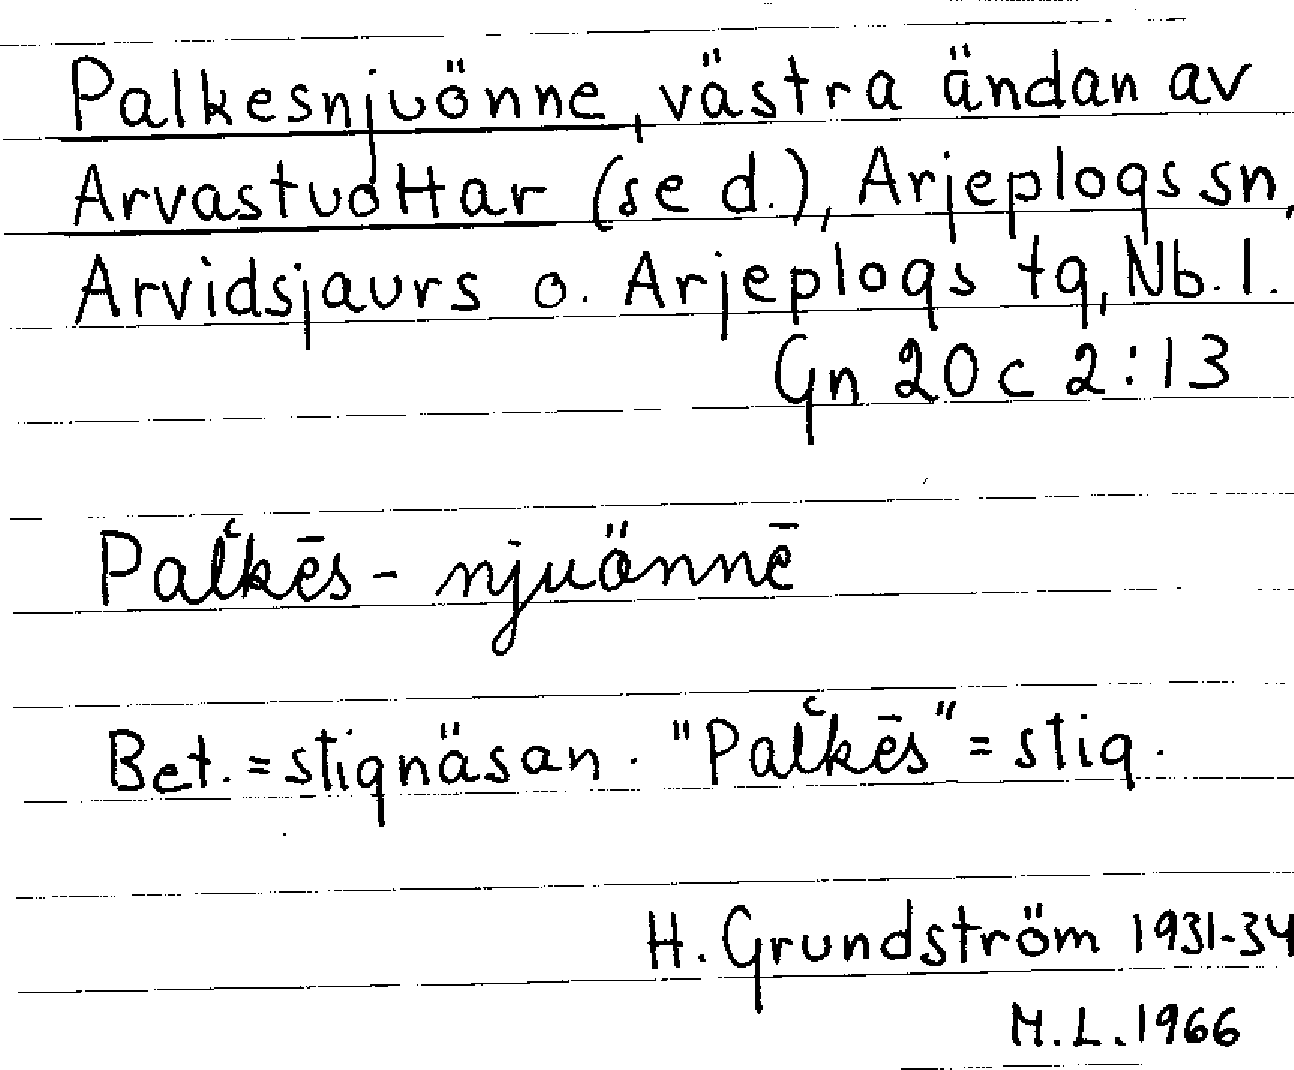 Palkesnjuönne, västra ändan av
Arvastuottar (se d.), Arjeplogs sn,
Arvidsjaurs o. Arjeplogs tg, Nb. l.
Gn 20 c 2:13
Palʿkēs - njuönnē
Bet. = stignäsan. "Palʿkēs" = stig.
H. Grundström 1931-34
M.L. 1966